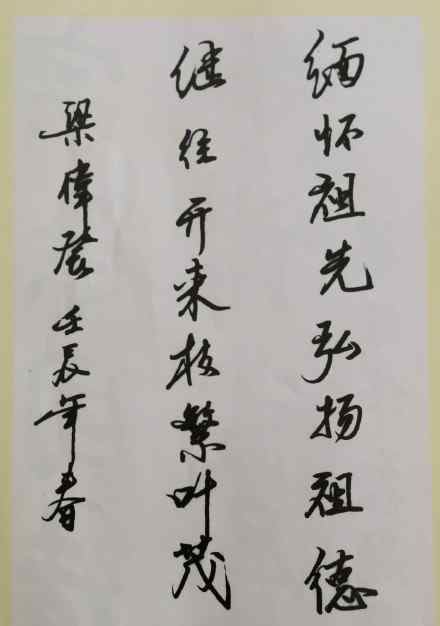 缅怀祖先弘扬祖德
继往开来枝繁叶茂
梁偉發壬辰年春